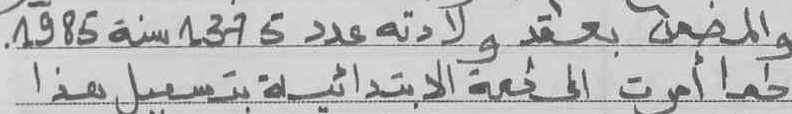 والمضمن بعقد ولادته عدد 1375 سنة 1985.
كما أمرت المحكمة الابتدائية بتسجيل هذا